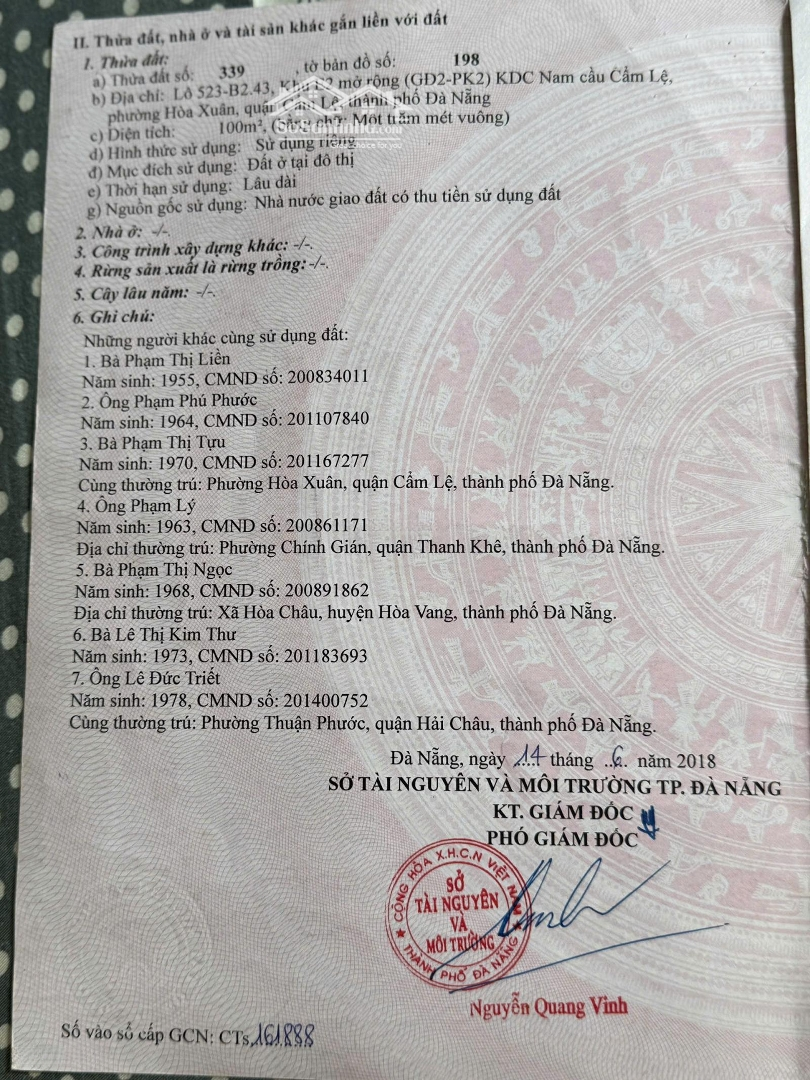 II. Thửa đất, nhà ở và tài sản khác gắn liền với đất
1. Thửa đất:
a) Thửa đất số: 339 , tờ bản đồ số: 198
b) Địa chỉ: Lô 523-B2.43, Khu mở rộng (GĐ2-PK2) KDC Nam cầu Cẩm Lệ,
phường Hòa Xuân, quận Cẩm Lệ, thành phố Đà Nẵng
c) Diện tích: 100m², (bằng chữ: Một trăm mét vuông)
d) Hình thức sử dụng: Sử dụng riêng
đ) Mục đích sử dụng: Đất ở tại đô thị
e) Thời hạn sử dụng: Lâu dài
g) Nguồn gốc sử dụng: Nhà nước giao đất có thu tiền sử dụng đất
2. Nhà ở: -/-.
3. Công trình xây dựng khác: -/-.
4. Rừng sản xuất là rừng trồng: -/-.
5. Cây lâu năm: -/-.
6. Ghi chú:
Những người khác cùng sử dụng đất:
1. Bà Phạm Thị Liền
Năm sinh: 1955, CMND số: 200834011
2. Ông Phạm Phú Phước
Năm sinh: 1964, CMND số: 201107840
3. Bà Phạm Thị Tựu
Năm sinh: 1970, CMND số: 201167277
Cùng thường trú: Phường Hòa Xuân, quận Cẩm Lệ, thành phố Đà Nẵng.
4. Ông Phạm Lý
Năm sinh: 1963, CMND số: 200861171
Địa chỉ thường trú: Phường Chính Gián, quận Thanh Khê, thành phố Đà Nẵng.
5. Bà Phạm Thị Ngọc
Năm sinh: 1968, CMND số: 200891862
Địa chỉ thường trú: Xã Hòa Châu, huyện Hòa Vang, thành phố Đà Nẵng.
6. Bà Lê Thị Kim Thư
Năm sinh: 1973, CMND số: 201183693
7. Ông Lê Đức Triết
Năm sinh: 1978, CMND số: 201400752
Cùng thường trú: Phường Thuận Phước, quận Hải Châu, thành phố Đà Nẵng.
Đà Nẵng, ngày 14 tháng 6 năm 2018
SỞ TÀI NGUYÊN VÀ MÔI TRƯỜNG TP. ĐÀ NẴNG
KT. GIÁM ĐỐC
PHÓ GIÁM ĐỐC
CỘNG HÒA X.H.C.N VIỆT NAM
SỞ
TÀI NGUYÊN
VÀ
MÔI TRƯỜNG
THÀNH PHỐ ĐÀ NẴNG
Nguyễn Quang Vinh
Số vào sổ cấp GCN: CTs 161888